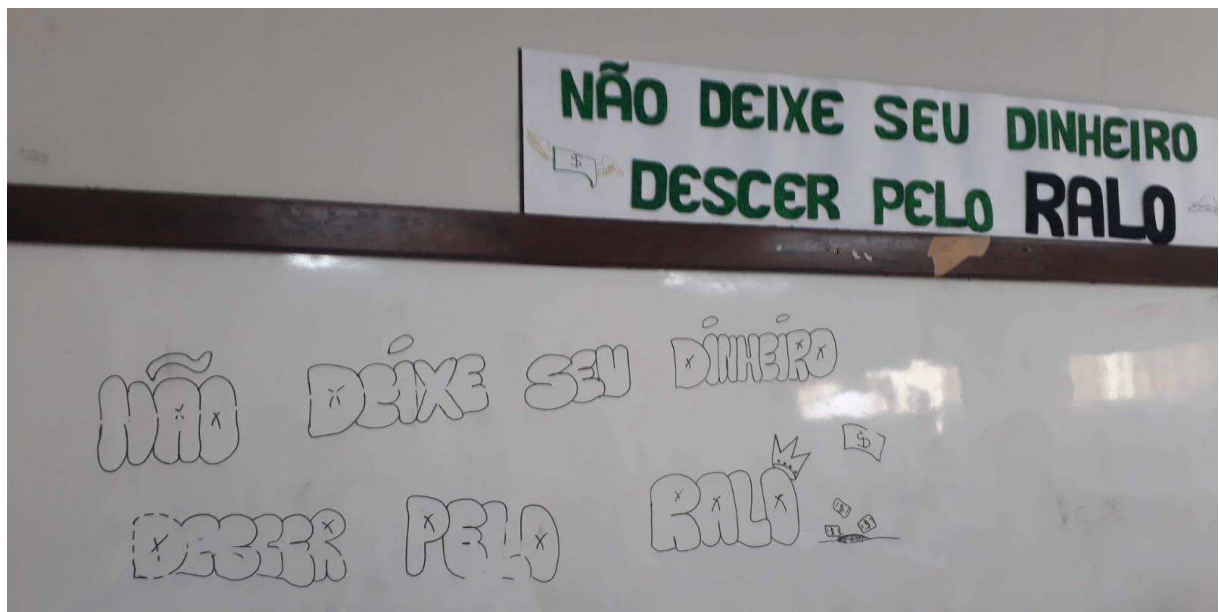 NÃO DEIXE SEU DINHEIRO
$
DESCER PELO RALO
NÃO DEIXE SEU DINHEIRO
DESCER PELO RALO
$
$
$ $